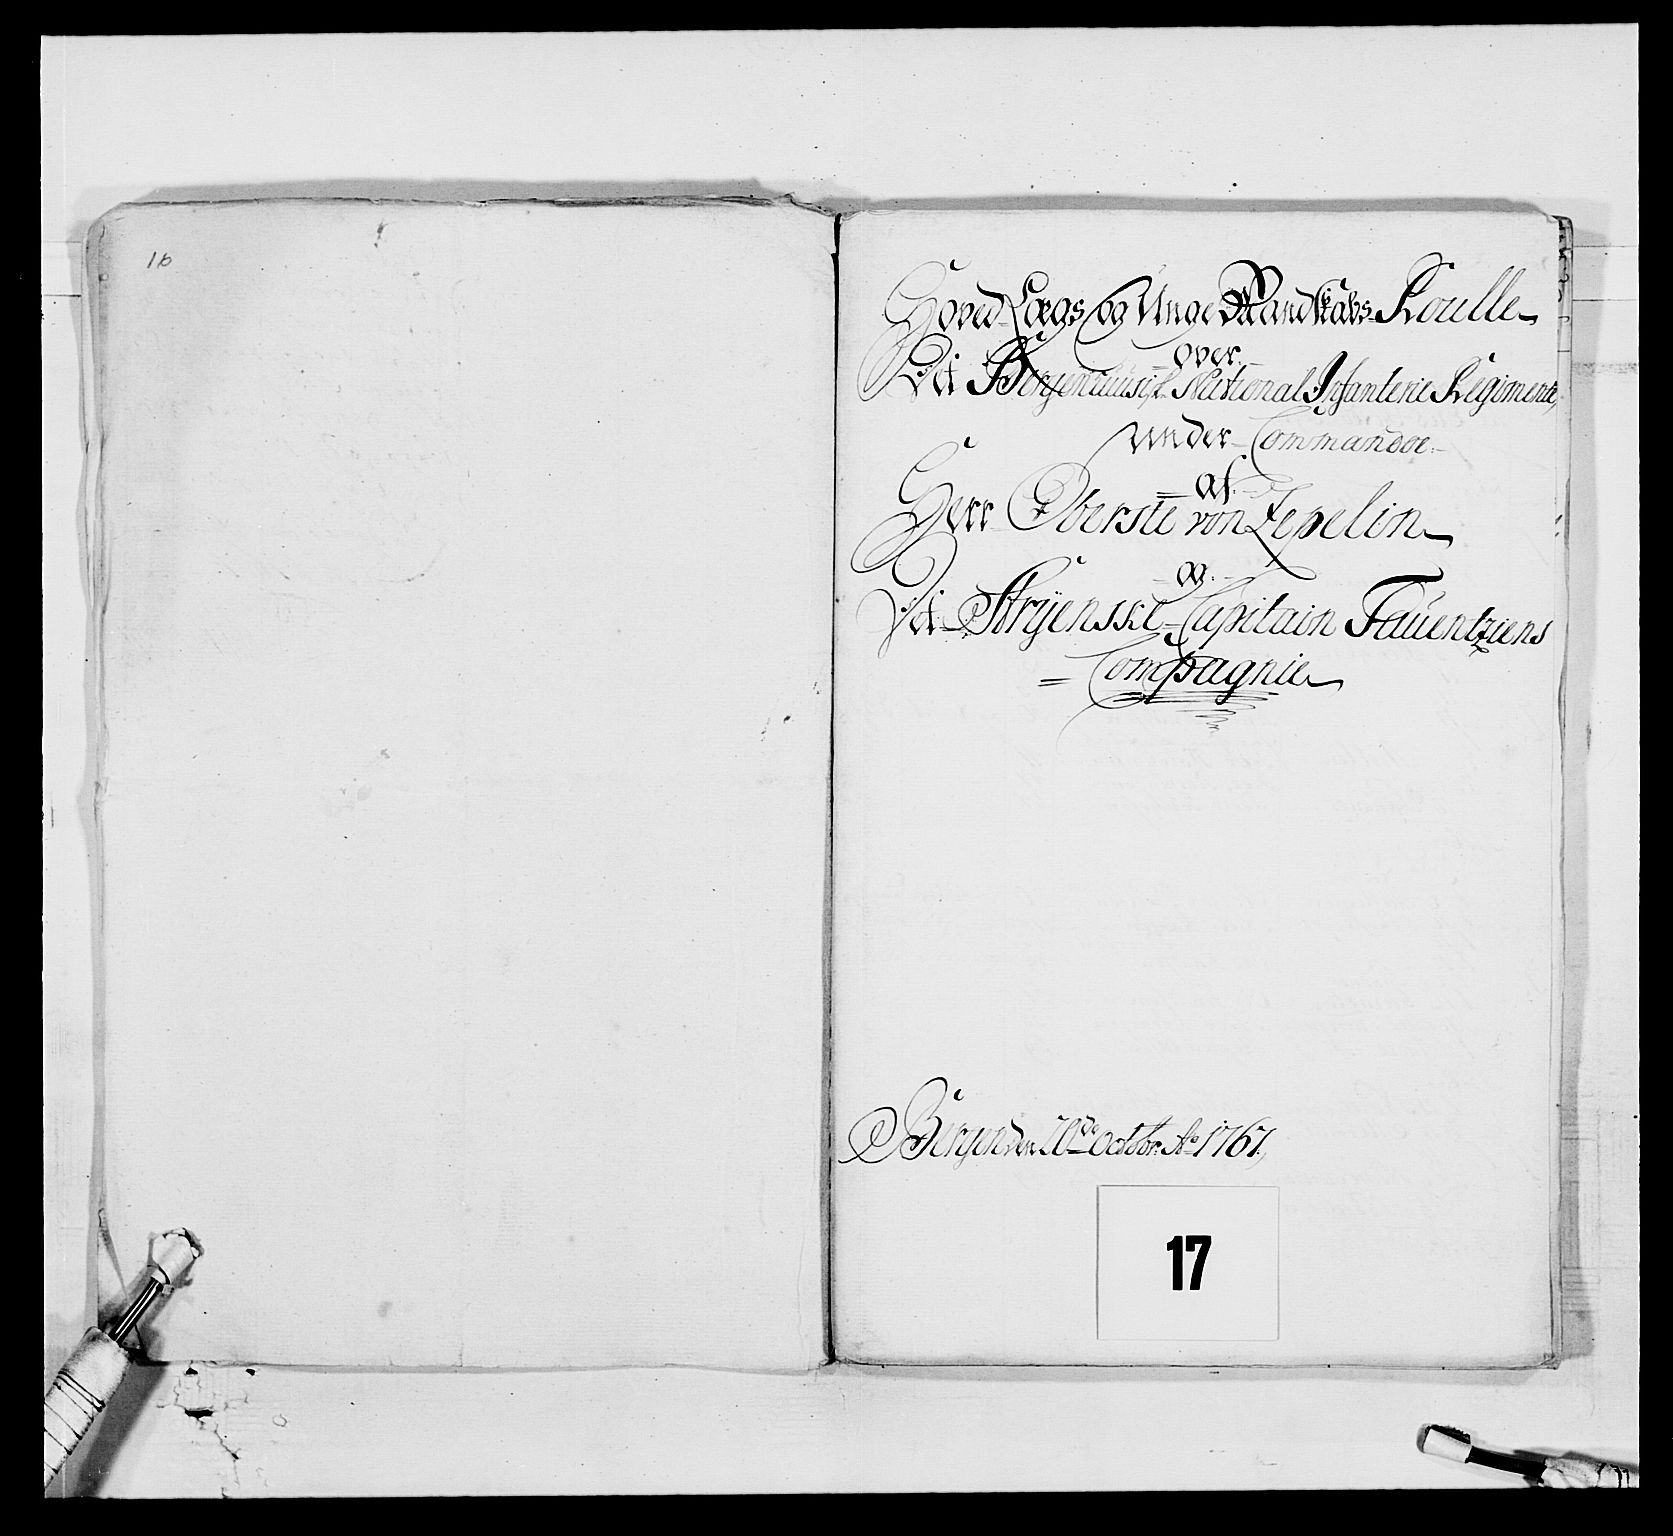 16
Hoved-Lægs og Unge Mandskabs-Roulle
over
Det Bergenhuusisk National Infanterie Regimente,
under-Commandoe
af
Herr Oberste von Zepelin
og
Det Stryenske Capitain Tauentziens
Compagnie
Bergen den 20de Octobr: Ao 1767,
17